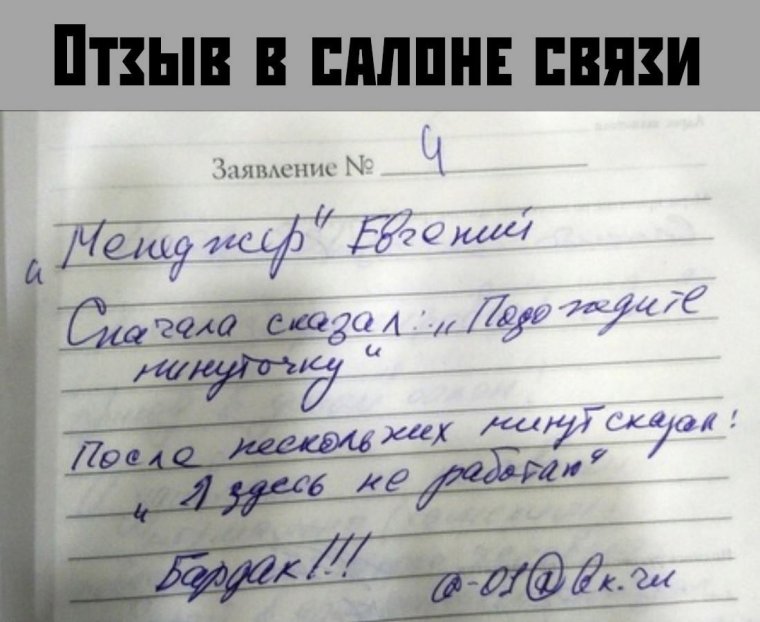 Отзыв в салоне связи
Заявление № 4
"Менеджер" Евгений
Сначала сказал: "Подождите
минуточку"
После нескольких минут сказал:
"Я здесь не работаю"
Бардак!!!